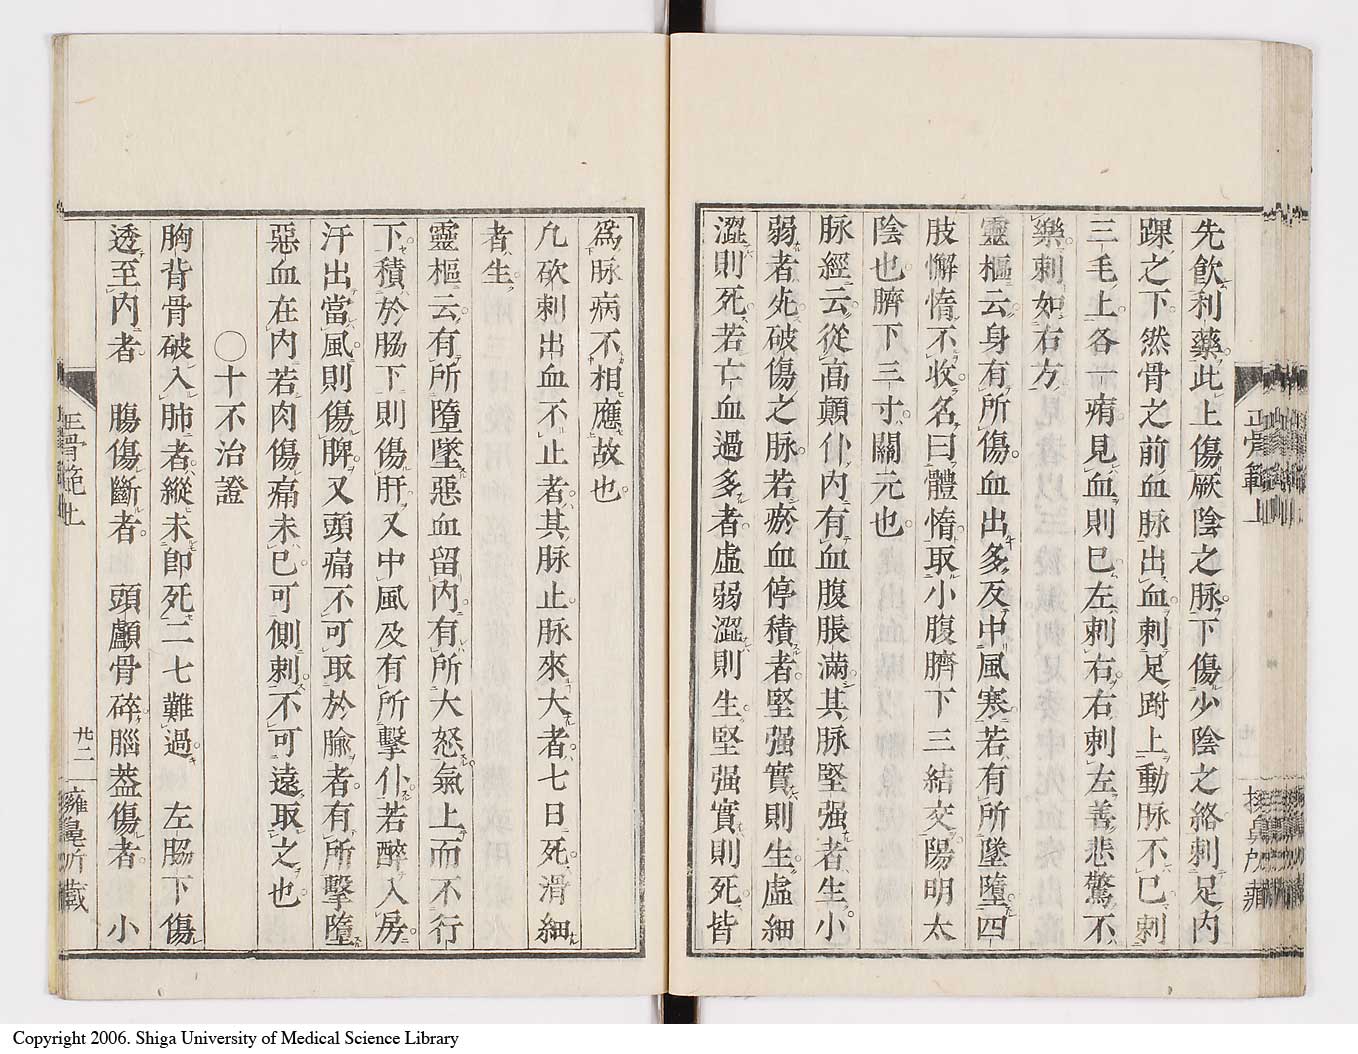 先飲利藥此上傷厥陰之脉下傷少陰之絡刺足内
踝之下然骨之前血脉出血刺足跗上動脉不已刺
三毛上各一痏見血則巳左刺右右刺左善悲驚不
樂刺如右方
靈樞云身有所傷血出多及中風寒若有所墜墮四
肢懈惰不收名曰體惰取小腹臍下三結交陽明太
陰也臍下三寸關元也
脉經云從高顛仆内有血腹脹滿其脉堅强者生小
弱者死破傷之脉若瘀血停積者堅强實則生虛細
澀則死若亡血過多者虛弱澀則生堅强實則死皆
爲脉病不相應故也
凢砍刺出血不止者其脉止脉來大者七日死滑細
者生
靈樞云有所墮墜惡血留内有所大怒氣上而不行
下積於脇下則傷肝又中風及有所擊仆若醉入房
汗出當風則傷脾又頭痛不可取於腧者有所擊墮
惡血在内若肉傷痛未已可側刺不可遠取之也
〇十不治證
胸背骨破入肺者縱未卽死二七難過 左脇下傷
透至内者 腸傷斷者 頭顱骨碎腦葢傷者 小
正骨範上
廿二
擁鼻所藏
正骨範上
Copyright 2006. Shiga University of Medical Science Library